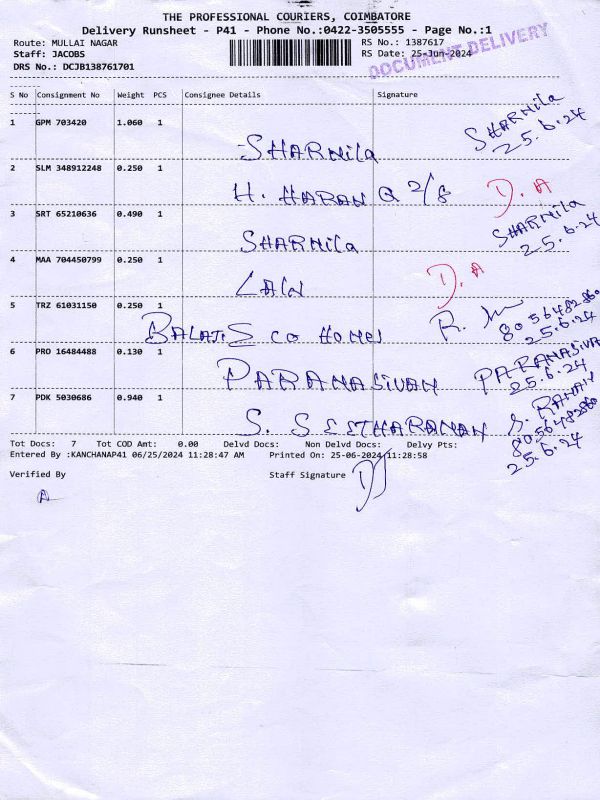 THE PROFESSIONAL COURIERS, COIMBATORE
Delivery Runsheet - P41 - Phone No.:0422-3505555 - Page No.:1
Route: MULLAI NAGAR RS No.: 1387617
Staff: JACOBS RS Date: 25-Jun-2024
DRS No.: DCJB138761701
DOCUMENT DELIVERY
S No Consignment No Weight PCS Consignee Details Signature
1 GPM 703420 1.060 1 SHARMila SHARMila 25.6.24
2 SLM 348912248 0.250 1 H. HARAN Q 2/8 D.A
3 SRT 65210636 0.490 1 SHARMila SHARMila 25.6.24
4 MAA 704450799 0.250 1 D.A
5 TRZ 61031150 0.250 1 BALAJI E CO HOMES R. 8056482860 25.6.24
6 PRO 16484488 0.130 1 PARAMASIVAM PARAMASIVA 25.6.24
7 PDK 5030686 0.940 1 S. SEETHARAMAN S. RAMAN 8056482860 25.6.24
Tot Docs: 7 Tot COD Amt: 0.00 Delvd Docs: Non Delvd Docs: Delvy Pts:
Entered By :KANCHANAP41 06/25/2024 11:28:47 AM Printed On: 25-06-2024 11:28:58
Verified By Staff Signature
A